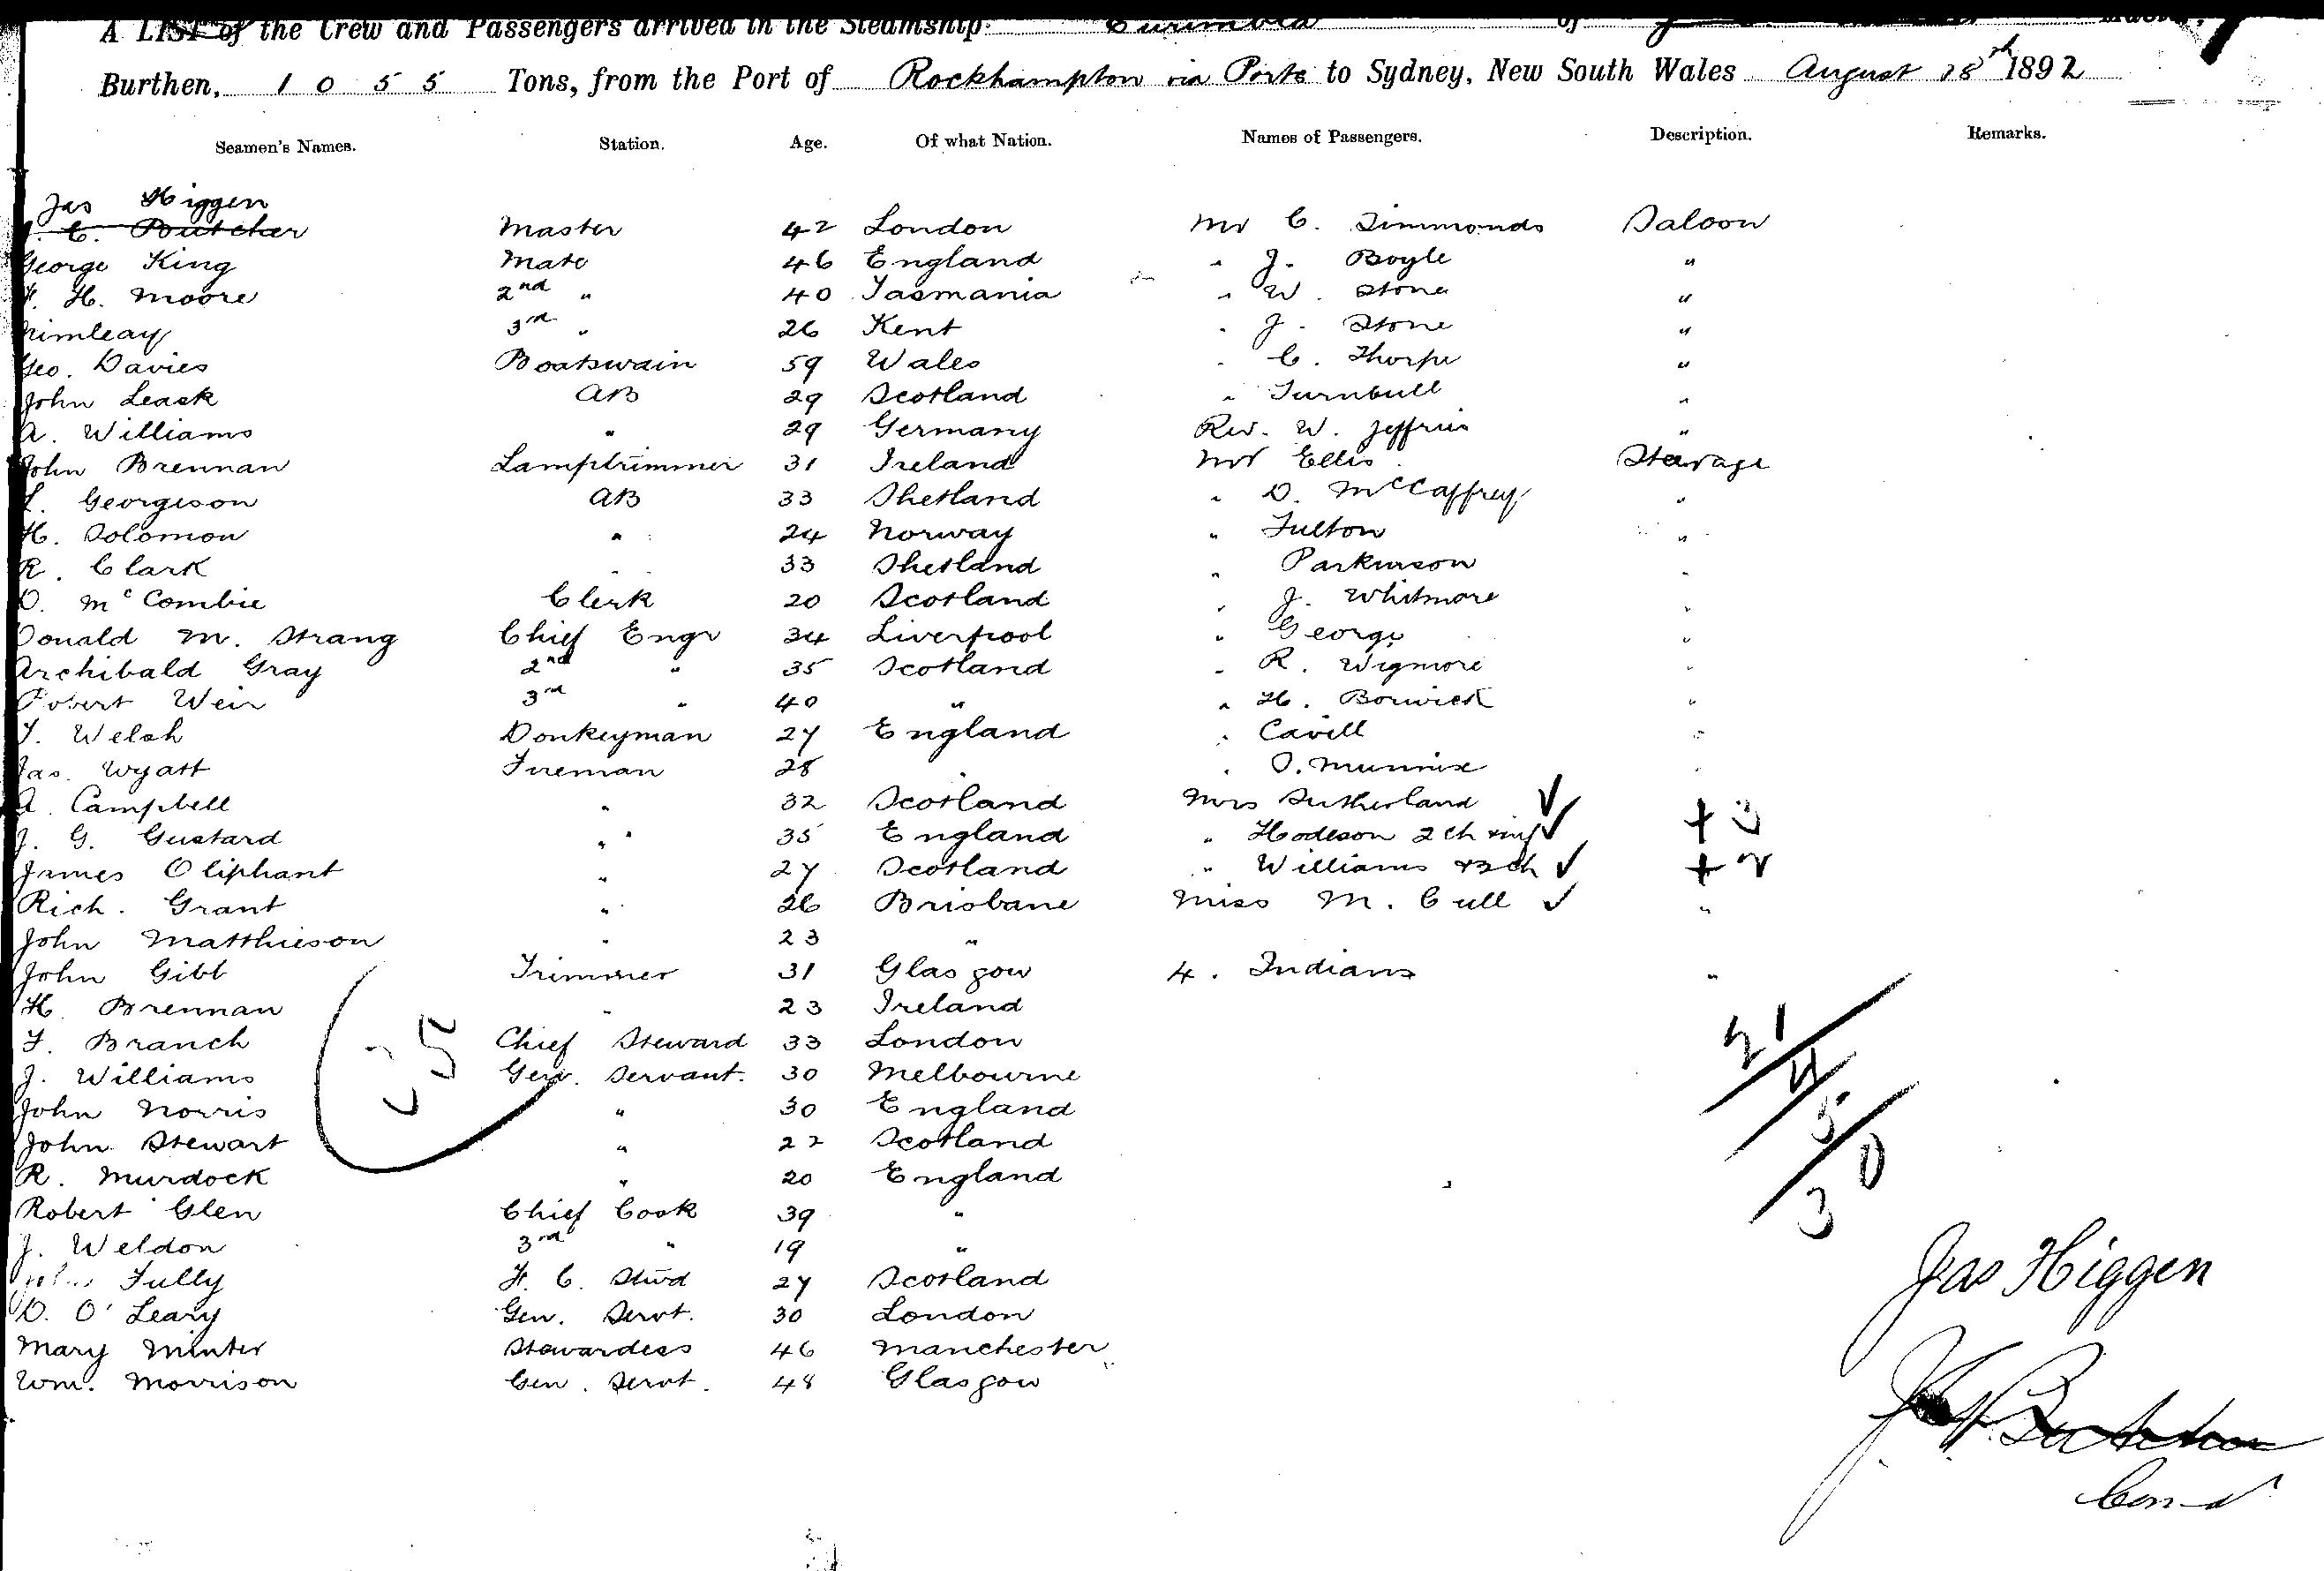 A LIST of the Crew and Passengers arrived in the Steamship Eurimbla of
Burthen, 1055 Tons, from the Port of Rockhampton via Ports to Sydney, New South Wales August 18th 1892
Seamen's Names. Station. Age. Of what Nation. Names of Passengers. Description. Remarks.
Jas Higgen
C. Butcher Master 42 London Mr C. Simmonds Saloon
George King Mate 46 England " J. Boyle "
H. Moore 2nd " 40 Tasmania " W. Stone "
3rd " 26 Kent " J. Stone "
Geo. Davies Boatswain 59 Wales " C. Thorpe "
John Leask AB 29 Scotland " Turnbull "
A. Williams " 29 Germany Rev. W. Jeffries "
John Brennan Lamptrimmer 31 Ireland Mr Ellis Steerage
L. Georgeson AB 33 Shetland " D. McCaffrey "
H. Solomon " 24 Norway " Fulton "
R. Clark " 33 Shetland " Parkinson "
D. McCombie Clerk 20 Scotland " J. Whitmore "
Donald M. Strang Chief Engr 34 Liverpool " George "
Archibald Gray 2nd " 35 Scotland " R. Wigmore "
Robert Weir 3rd " 40 " " H. Borwick "
T. Welsh Donkeyman 27 England " Cavill "
Jas. Wyatt Fireman 28 " " O. Munnix "
A. Campbell " 32 Scotland Mrs Sutherland ✓
J. G. Gustard " 35 England " Hodgson 2 ch & inf ✓ +
James Oliphant " 27 Scotland " Williams & 3 ch ✓ +
Rich. Grant " 26 Brisbane Miss M. Cull ✓ "
John Matthieson " 23 "
John Gibb Trimmer 31 Glasgow 4. Indians "
H. Brennan " 23 Ireland
F. Branch Chief Steward 33 London
J. Williams Gen. Servant. 30 Melbourne
John Norris " 30 England
John Stewart " 22 Scotland
R. Murdock " 20 England
Robert Glen Chief Cook 39 "
J. Weldon 3rd " 19 "
John Tully F. C. Stwd 27 Scotland
D. O'Leary Gen. Servt. 30 London
Mary Minter Stewardess 46 Manchester
Wm. Morrison Gen. Servt. 48 Glasgow
35
21/4/5/0
3
Jas Higgen